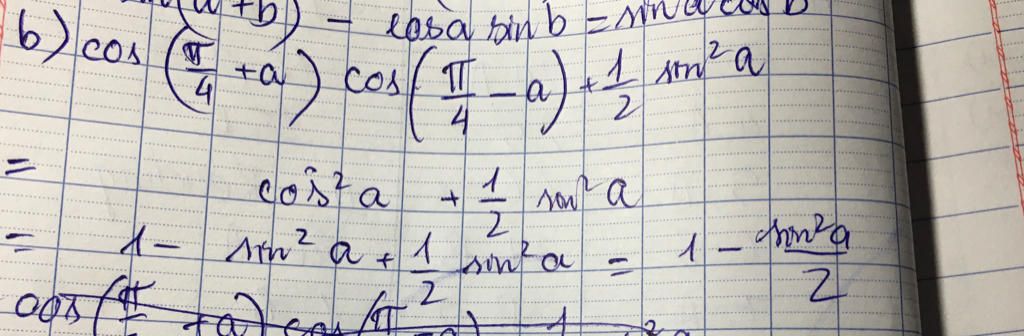 (a+b) - cosa sin b = sin a cos b
b) cos(π/4 + a) cos(π/4 - a) + 1/2 sin² a
= cos² a + 1/2 sin² a
= 1 - sin² a + 1/2 sin² a = 1 - sin²a/2
cos(π/ + a) cos(π 1 2